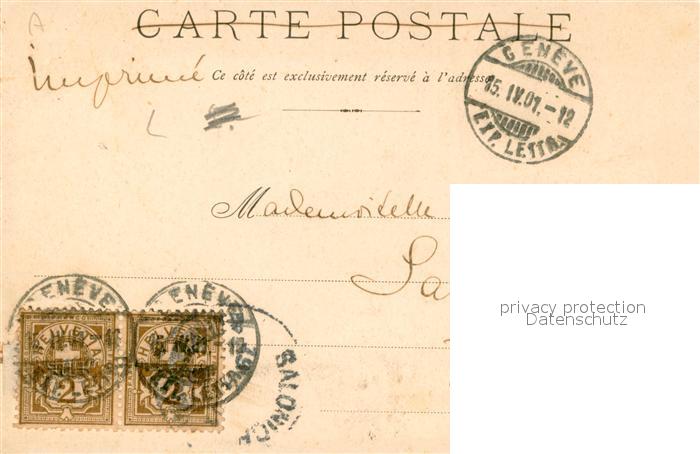 CARTE POSTALE
imprimé
Ce côté est exclusivement réservé à l'adresse
GENÈVE
15. IV. 01. – 12
EXP. LETTR.
Mademoiselle
Sa
privacy protection
Datenschutz
GENÈVE
GENÈVE
HELVETIA
HELVETIA
2
2
SALONICA